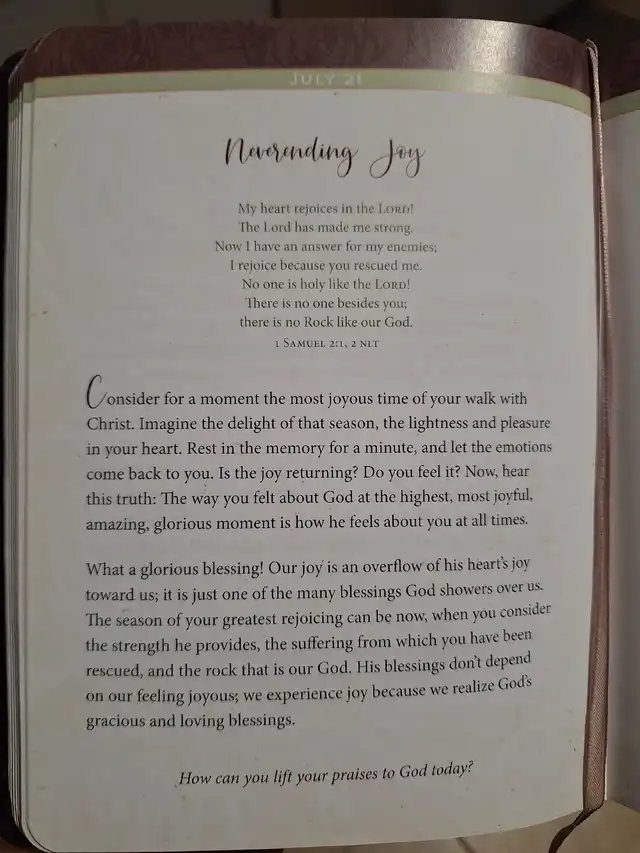 JULY 21
Neverending Joy
My heart rejoices in the LORD!
The Lord has made me strong.
Now I have an answer for my enemies;
I rejoice because you rescued me.
No one is holy like the LORD!
There is no one besides you;
there is no Rock like our God.
1 SAMUEL 2:1, 2 NLT
Consider for a moment the most joyous time of your walk with
Christ. Imagine the delight of that season, the lightness and pleasure
in your heart. Rest in the memory for a minute, and let the emotions
come back to you. Is the joy returning? Do you feel it? Now, hear
this truth: The way you felt about God at the highest, most joyful,
amazing, glorious moment is how he feels about you at all times.
What a glorious blessing! Our joy is an overflow of his heart's joy
toward us; it is just one of the many blessings God showers over us.
The season of your greatest rejoicing can be now, when you consider
the strength he provides, the suffering from which you have been
rescued, and the rock that is our God. His blessings don't depend
on our feeling joyous; we experience joy because we realize God's
gracious and loving blessings.
How can you lift your praises to God today?